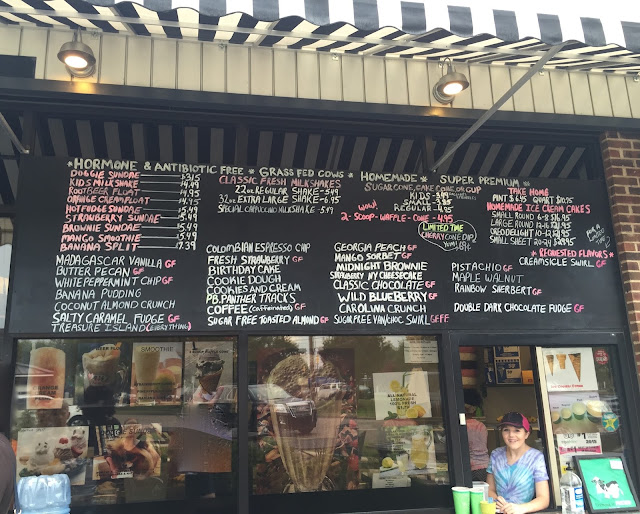 *HORMONE & ANTIBIOTIC FREE * GRASS FED COWS * HOMEMADE * SUPER PREMIUM *
DOGGIE SUNDAE
KIDS MILKSHAKE
ROOTBEER FLOAT
ORANGE CREAM FLOAT
HOT FUDGE SUNDAE
STRAWBERRY SUNDAE
BROWNIE SUNDAE
MANGO SMOOTHIE
BANANA SPLIT 7.39
CLASSIC FRESH MILKSHAKES
22oz REGULAR SHAKE-5.49
32oz EXTRA LARGE SHAKE-6.95
SPECIAL CAPPUCCINO MILKSHAKE-5.49
SUGAR CONE, CAKE CONE, OR CUP
KIDS
SMALL
REGULAR
WOW!
2-SCOOP-WAFFLE-CONE-4.95
LIMITED TIME
CHERRY CONE DIP
TAKE HOME
PINT $6.95 QUART $10.75
HOMEMADE ICE CREAM CAKES
SMALL ROUND 6-8
LARGE ROUND 12-16
OREO DELIGHT 10-12
SMALL SHEET 20-24
*REQUESTED FLAVORS*
CREAMSICLE SWIRL GF
MADAGASCAR VANILLA GF
BUTTER PECAN GF
WHITE PEPPERMINT CHIP GF
BANANA PUDDING
COCONUT ALMOND CRUNCH
SALTY CARAMEL FUDGE GF
TREASURE ISLAND (EVERYTHING)
COLOMBIAN ESPRESSO CHIP
FRESH STRAWBERRY GF
BIRTHDAY CAKE
COOKIE DOUGH
COOKIES AND CREAM
PB.PANTHER TRACKS
COFFEE (Caffeinated) GF
SUGAR FREE TOASTED ALMOND GF
GEORGIA PEACH GF
MANGO SORBET GF
MIDNIGHT BROWNIE
STRAWBERRY NY CHEESECAKE
CLASSIC CHOCOLATE GF
WILD BLUEBERRY GF
CAROLINA CRUNCH
SUGARFREE VAN/CHOC SWIRL GF
PISTACHIO GF
MAPLE WALNUT
RAINBOW SHERBERT GF
DOUBLE DARK CHOCOLATE FUDGE GF
SMOOTHIE
ALL-NATURAL
LEMONADE